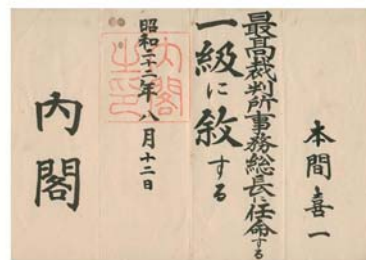 本間喜一
最高裁判所事務総長に任命する
一級に敘する
昭和二十二年八月十二日
内閣
内閣之印